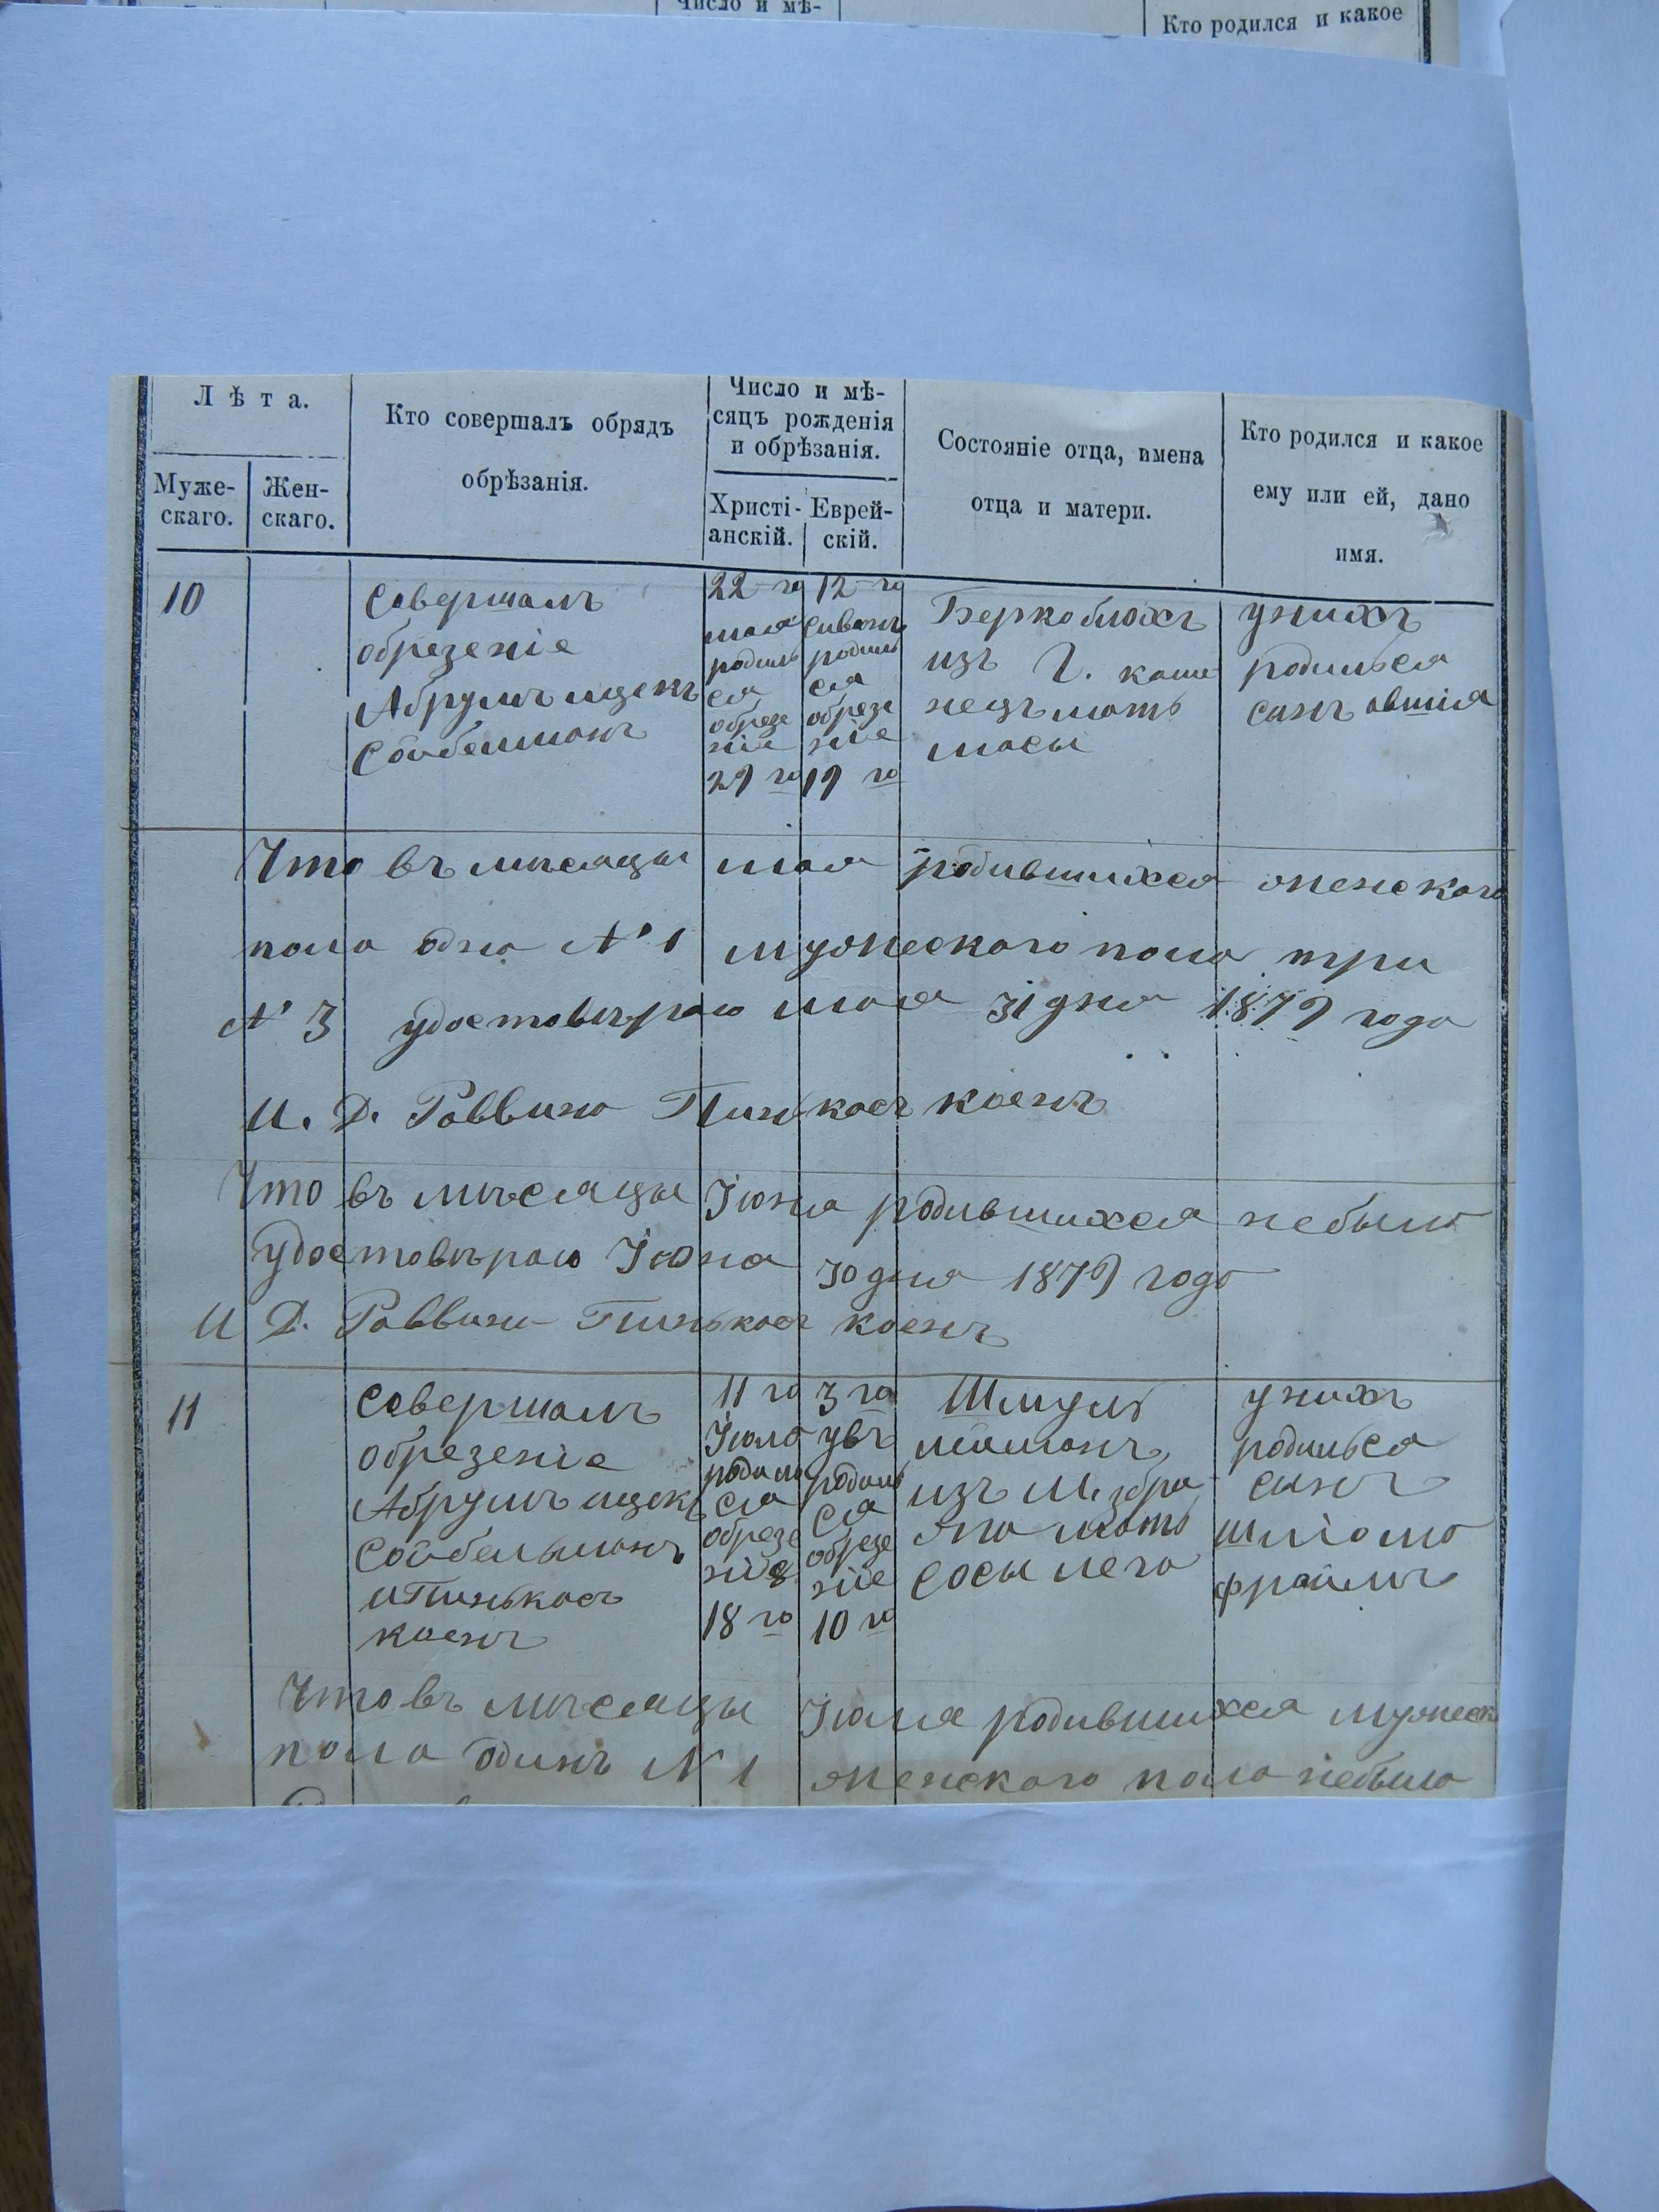 Число и мѣ-
Кто родился и какое
Лѣта.
Муже-
скаго.
Жен-
скаго.
Кто совершалъ обрядъ
обрѣзанія.
Число и мѣ-
сяцъ рожденія
и обрѣзанія.
Христі-
анскій.
Еврей-
скій.
Состояніе отца, имена
отца и матери.
Кто родился и какое
ему или ей, дано
имя.
10
Совершалъ
обрезеніе
Абрумъ ицекъ
22-го
мая
родилъ
ся
обрезе
ніе
29 го
12-го
сиванъ
родилъ
ся
обрезе
ніе
19 го
Берко блохъ
изъ Г. каме
нецъ мать
масы
унихъ
родилься
сынъ
Что въ мѣсяцы мая родившихся женскаго
пола одна № 1 мужескаго пола три
№ 3 удостовѣраю мая 31 дня 1879 года
И. Д. Раввина Пинькасъ коенъ
Что въ мѣсяцы Іюня родившихся небыло
удостовѣраю Іюня 30 дня 1879 года
И Д. Раввина Пинькасъ коенъ
11
Совершалъ
обрезеніе
Абрумъ ицекъ
Сойбельманъ
иПинькасъ
коенъ
11 го
Іюля
родилъ
ся
обрезе
ніе
18 го
3 го
увъ
родилъ
ся
обрезе
ніе
10 го
Шмуль
изъ М. збри
жа мать
унихъ
родилься
сынъ
шліома
фраимъ
Что въ мѣсяцы Іюля родившихся мужеск
пола одинъ № 1 женскаго пола небыло